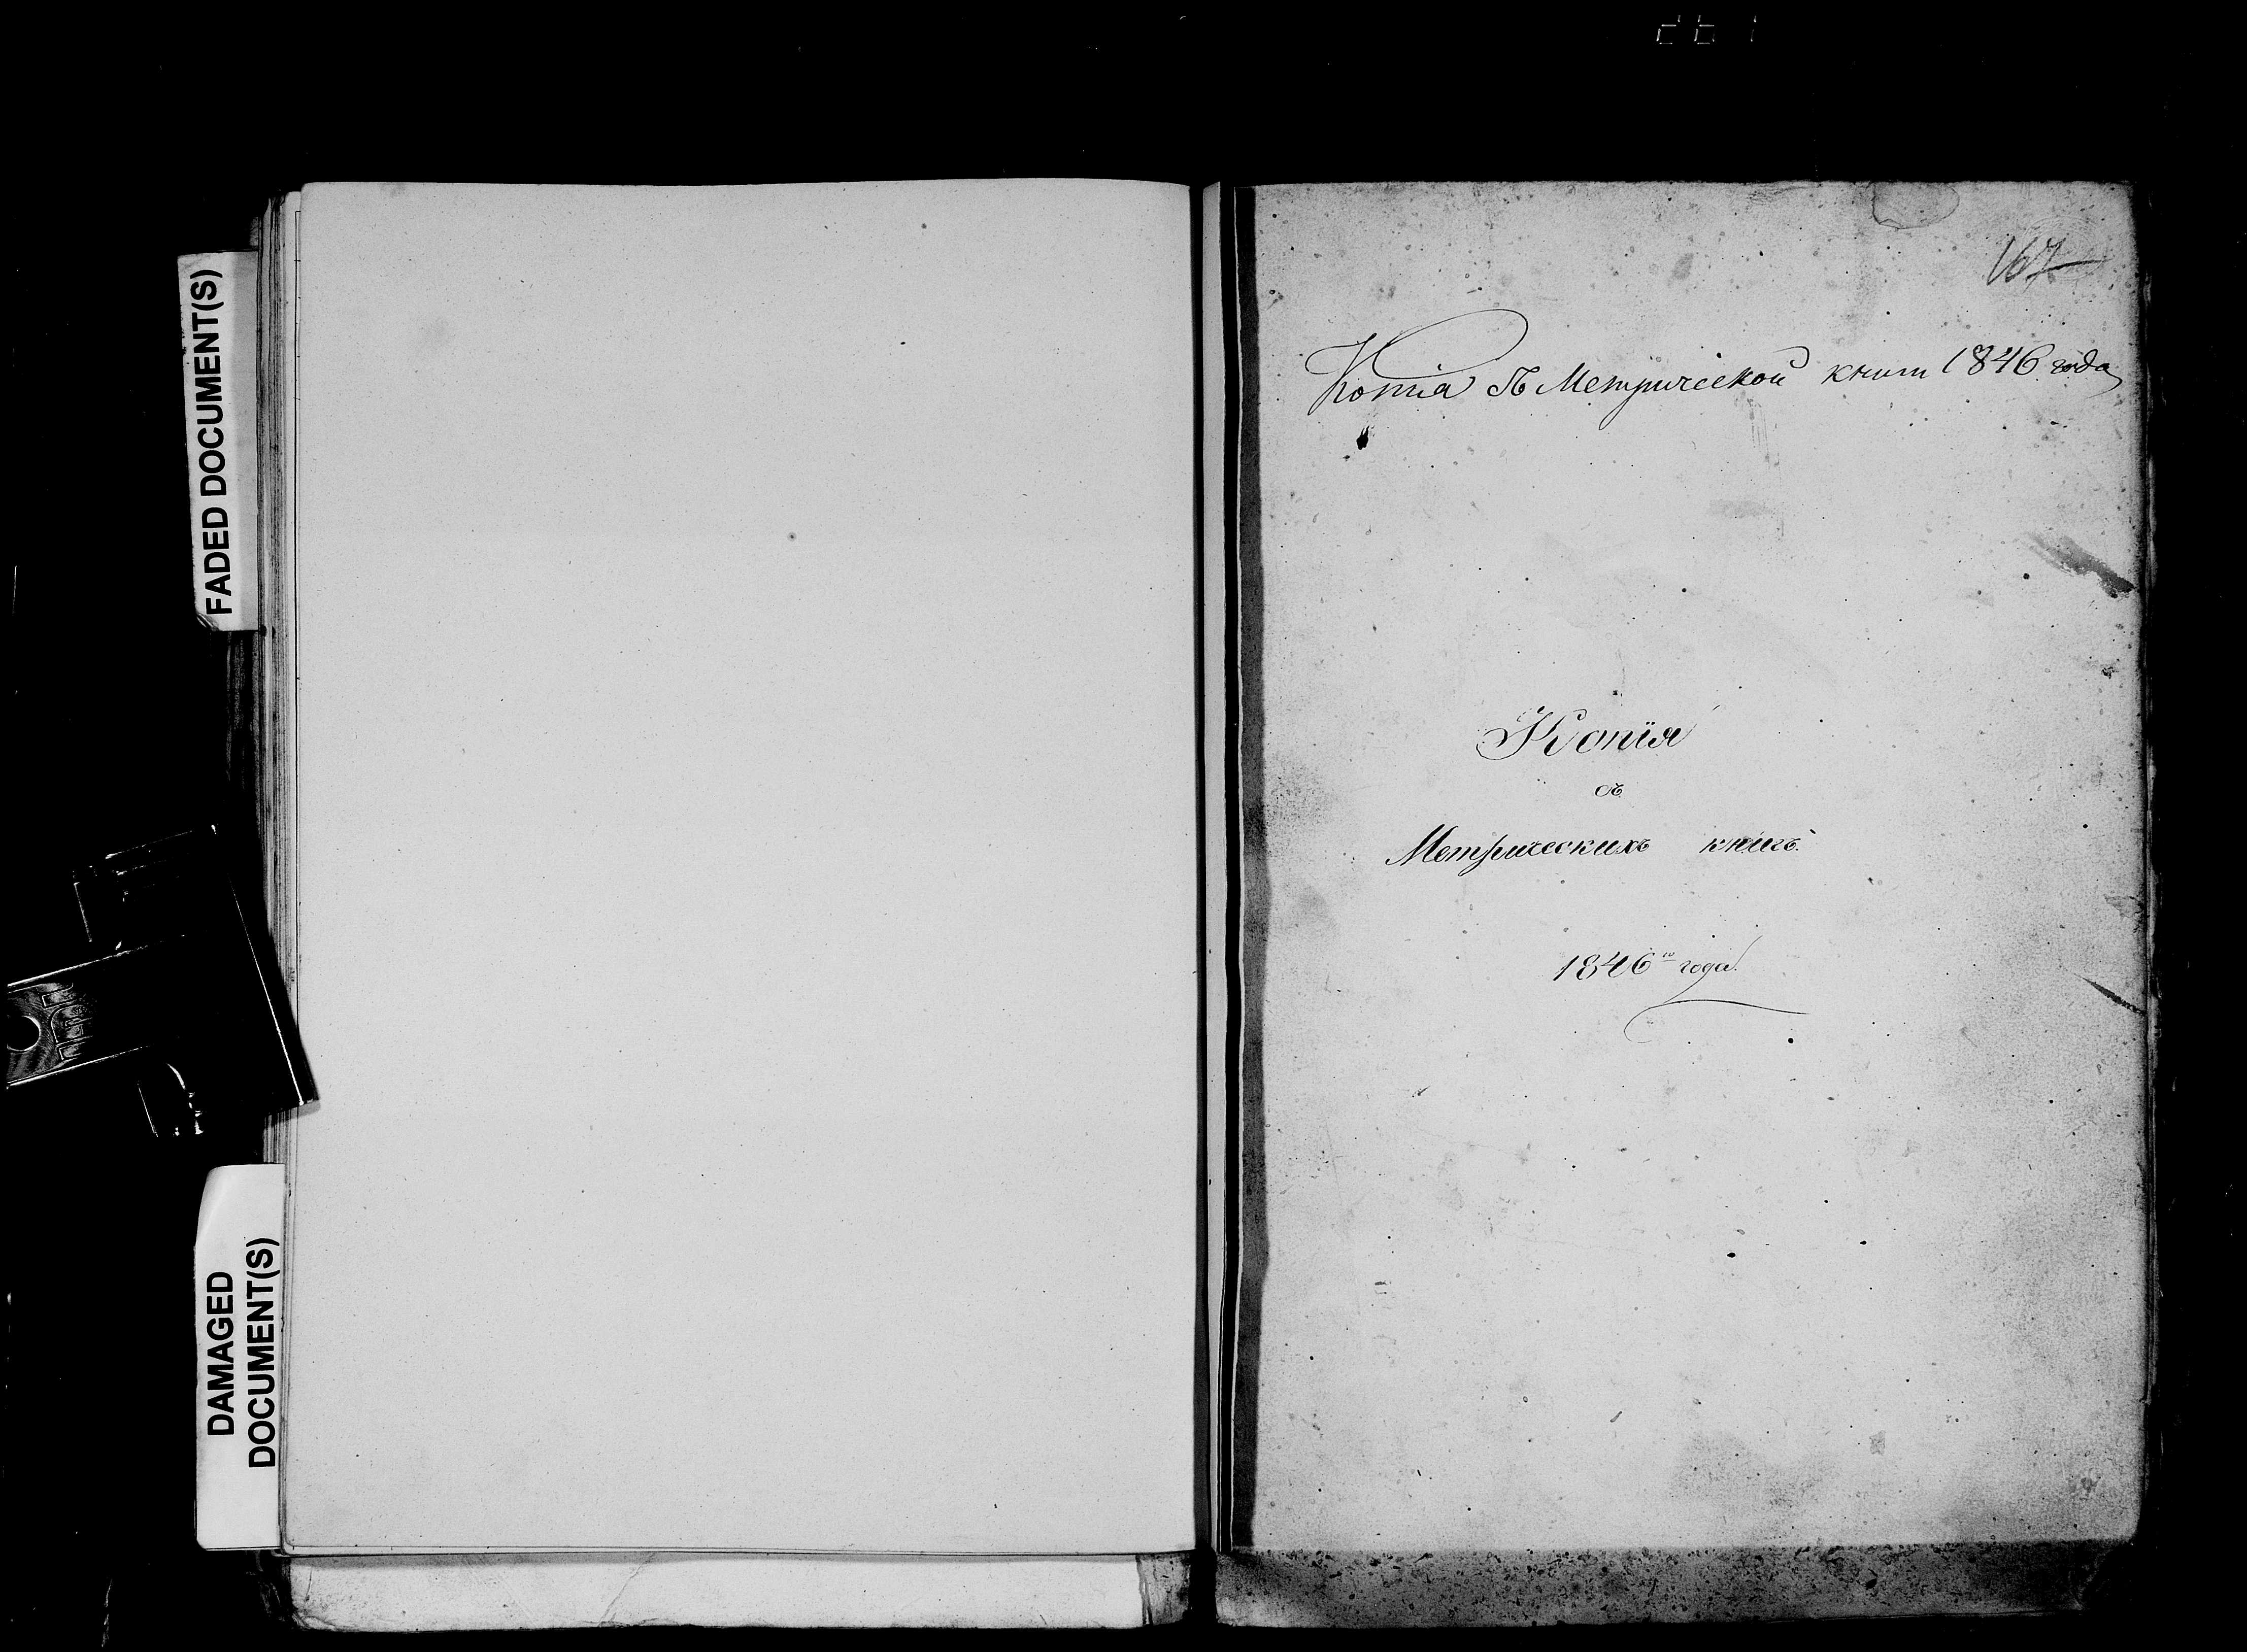 FADED DOCUMENT(S)
DAMAGED
DOCUMENT(S)
167
Копіа съ Метрической книги 1846 года
Копія
съ
Метрическихъ книгъ.
1846го года.